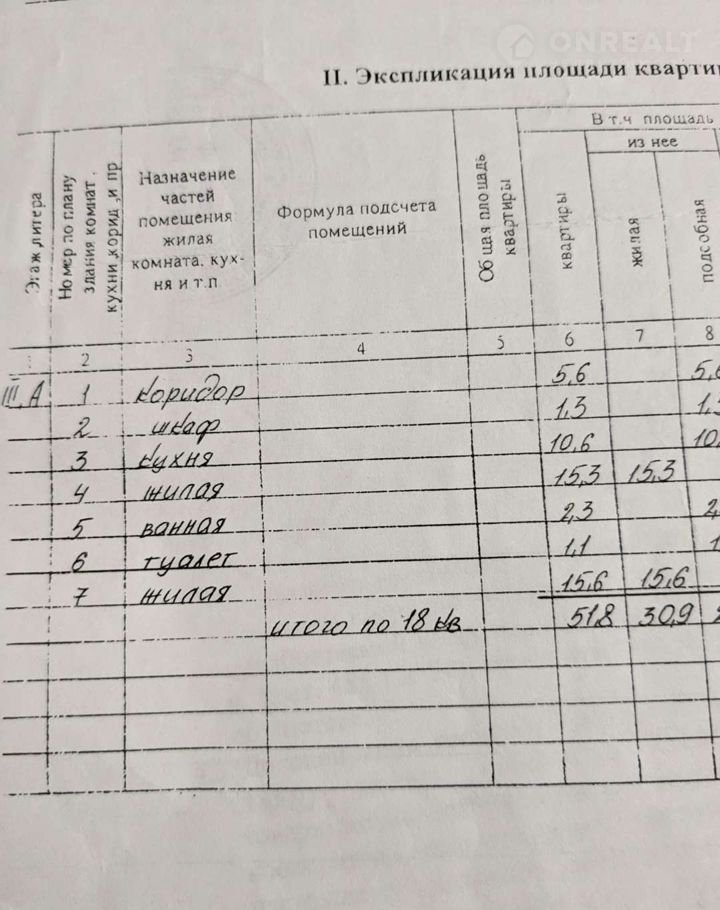 ONREALT
II. Экспликация площади кварти
Этаж, литера
Номер по плану здания комнат, кухни, корид., и пр
Назначение частей помещения: жилая комната, кух- ня и т.п
Формула подсчета помещений
Общая площадь квартиры
В т.ч площадь
из нее
квартиры
жилая
подсобная
2 3 4 5 6 7 8
III, А 1 коридор 5,6 5,6
2 шкаф 1,3 1,3
3 кухня 10,6 10,
4 жилая 15,3 15,3
5 ванная 2,3 2,
6 туалет 1,1 1
7 жилая 15,6 15,6
итого по 18 кв 51,8 30,9 2